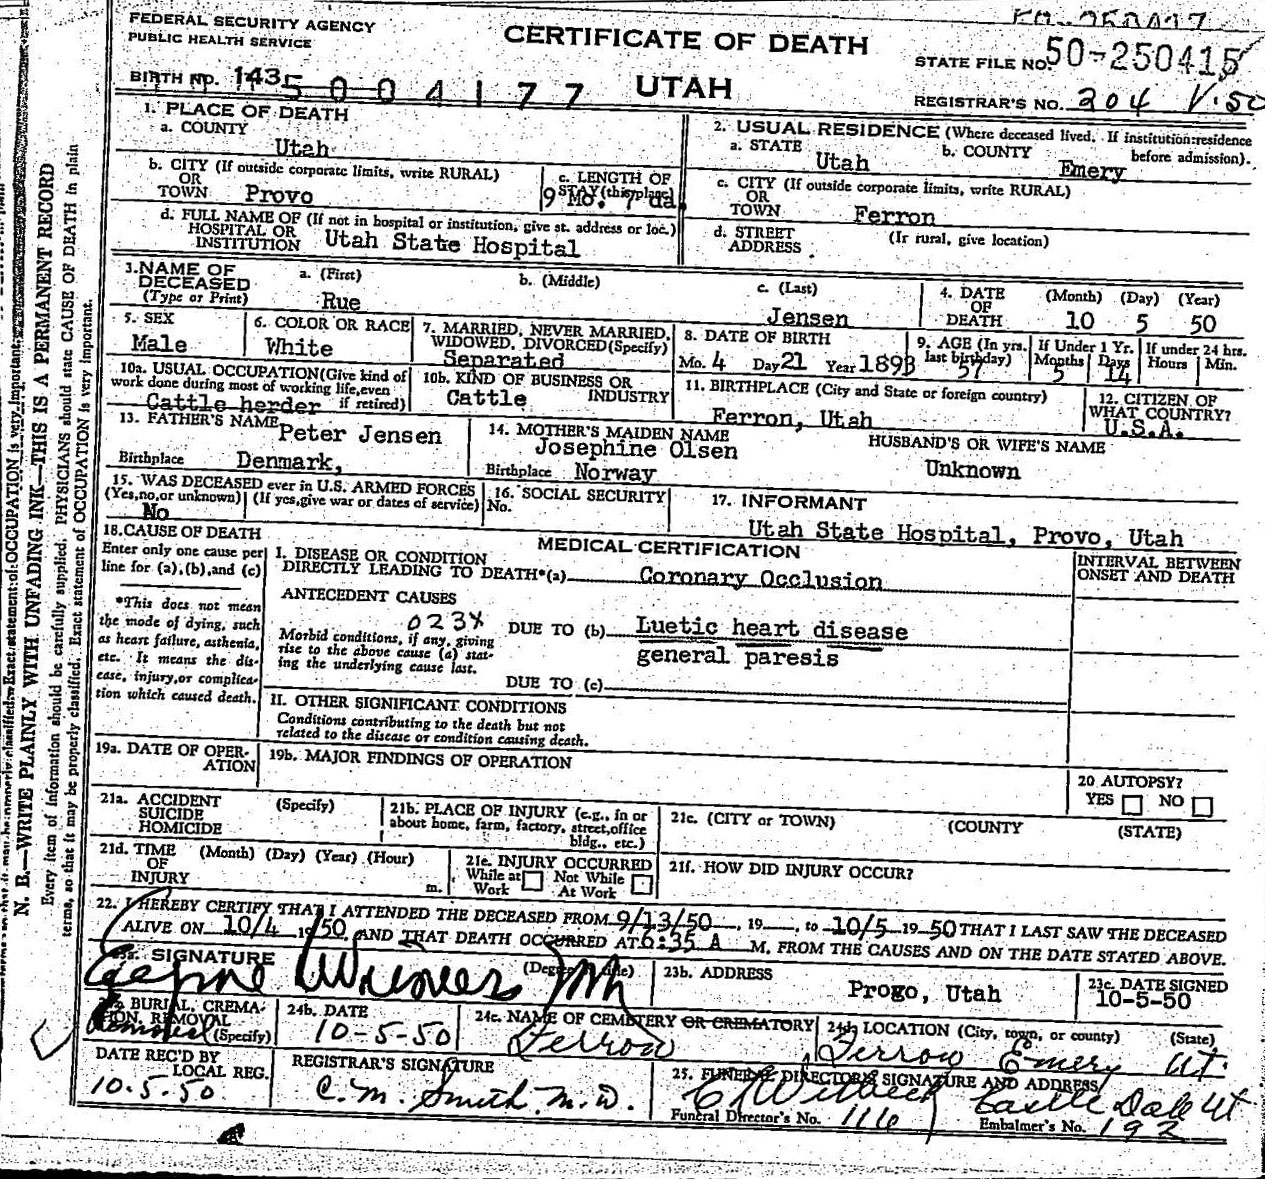 FEDERAL SECURITY AGENCY
PUBLIC HEALTH SERVICE
CERTIFICATE OF DEATH
UTAH
STATE FILE NO. 50-250415
BIRTH NO. 143 5 0 0 4 1 7 7
REGISTRAR'S NO. 204
1. PLACE OF DEATH
a. COUNTY
Utah
b. CITY (If outside corporate limits, write RURAL)
OR
TOWN Provo
c. LENGTH OF
STAY (this place)
9 Mo. 7 da.
d. FULL NAME OF (If not in hospital or institution, give st. address or loc.)
HOSPITAL OR
INSTITUTION Utah State Hospital
2. USUAL RESIDENCE (Where deceased lived. If institution: residence
before admission).
a. STATE Utah
b. COUNTY Emery
c. CITY (If outside corporate limits, write RURAL)
OR
TOWN Ferron
d. STREET (If rural, give location)
ADDRESS
3. NAME OF
DECEASED
(Type or Print)
a. (First) Rue
b. (Middle)
c. (Last) Jensen
4. DATE
OF
DEATH
(Month) (Day) (Year)
10 5 50
5. SEX
Male
6. COLOR OR RACE
White
7. MARRIED, NEVER MARRIED,
WIDOWED, DIVORCED (Specify)
Separated
8. DATE OF BIRTH
Mo. 4 Day 21 Year 1893
9. AGE (In yrs.
last birthday)
57
If Under 1 Yr.
Months Days
5 14
If under 24 hrs.
Hours Min.
10a. USUAL OCCUPATION (Give kind of
work done during most of working life, even
if retired)
Cattle herder
10b. KIND OF BUSINESS OR
INDUSTRY
Cattle
11. BIRTHPLACE (City and State or foreign country)
Ferron, Utah
12. CITIZEN OF
WHAT COUNTRY?
U.S.A.
13. FATHER'S NAME
Peter Jensen
Birthplace Denmark,
14. MOTHER'S MAIDEN NAME
Josephine Olsen
Birthplace Norway
HUSBAND'S OR WIFE'S NAME
Unknown
15. WAS DECEASED ever in U.S. ARMED FORCES
(Yes, no, or unknown) (If yes, give war or dates of service)
No
16. SOCIAL SECURITY
No.
17. INFORMANT
Utah State Hospital, Provo, Utah
18. CAUSE OF DEATH
Enter only one cause per
line for (a), (b), and (c)
*This does not mean
the mode of dying, such
as heart failure, asthenia,
etc. It means the dis-
ease, injury, or complica-
tion which caused death.
MEDICAL CERTIFICATION
I. DISEASE OR CONDITION
DIRECTLY LEADING TO DEATH*(a) Coronary Occlusion
ANTECEDENT CAUSES
023X
Morbid conditions, if any, giving
rise to the above cause (a) stat-
ing the underlying cause last.
DUE TO (b) Luetic heart disease
general paresis
DUE TO (c)
INTERVAL BETWEEN
ONSET AND DEATH
II. OTHER SIGNIFICANT CONDITIONS
Conditions contributing to the death but not
related to the disease or condition causing death.
19a. DATE OF OPER-
ATION
19b. MAJOR FINDINGS OF OPERATION
20 AUTOPSY?
YES NO
21a. ACCIDENT (Specify)
SUICIDE
HOMICIDE
21b. PLACE OF INJURY (e.g., in or
about home, farm, factory, street, office
bldg., etc.)
21c. (CITY or TOWN) (COUNTY (STATE)
21d. TIME (Month) (Day) (Year) (Hour)
OF
INJURY m.
21e. INJURY OCCURRED
While at Not While
Work At Work
21f. HOW DID INJURY OCCUR?
22. I HEREBY CERTIFY THAT I ATTENDED THE DECEASED FROM 9/13/50, 19 , to 10/5 19 50 THAT I LAST SAW THE DECEASED
ALIVE ON 10/4 19 50, AND THAT DEATH OCCURRED AT 6:35 A M. FROM THE CAUSES AND ON THE DATE STATED ABOVE.
23a. SIGNATURE (Degree or title)
23b. ADDRESS
Progo, Utah
23c. DATE SIGNED
10-5-50
24a. BURIAL, CREMA-
TION, REMOVAL
(Specify)
Removal
24b. DATE
10-5-50
24c. NAME OF CEMETERY OR CREMATORY
Ferron
24d. LOCATION (City, town, or county) (State)
Ferron Emery Ut.
DATE REC'D BY
LOCAL REG.
10-5-50
REGISTRAR'S SIGNATURE
C. M. Smith, M.D.
25. FUNERAL DIRECTOR'S SIGNATURE AND ADDRESS
Castle Dale Ut
Funeral Director's No. 116
Embalmer's No. 192
N. B.—WRITE PLAINLY WITH UNFADING INK—THIS IS A PERMANENT RECORD
Every item of information should be carefully supplied. PHYSICIANS should state CAUSE OF DEATH in plain
terms, so that it may be properly classified. Exact statement of OCCUPATION is very important.